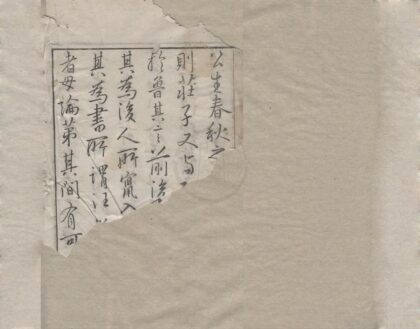 公生春秋之
則莊子又與
於魯其言前後
其為後人所竄入
其為書所謂汪
者毋論第其間有可